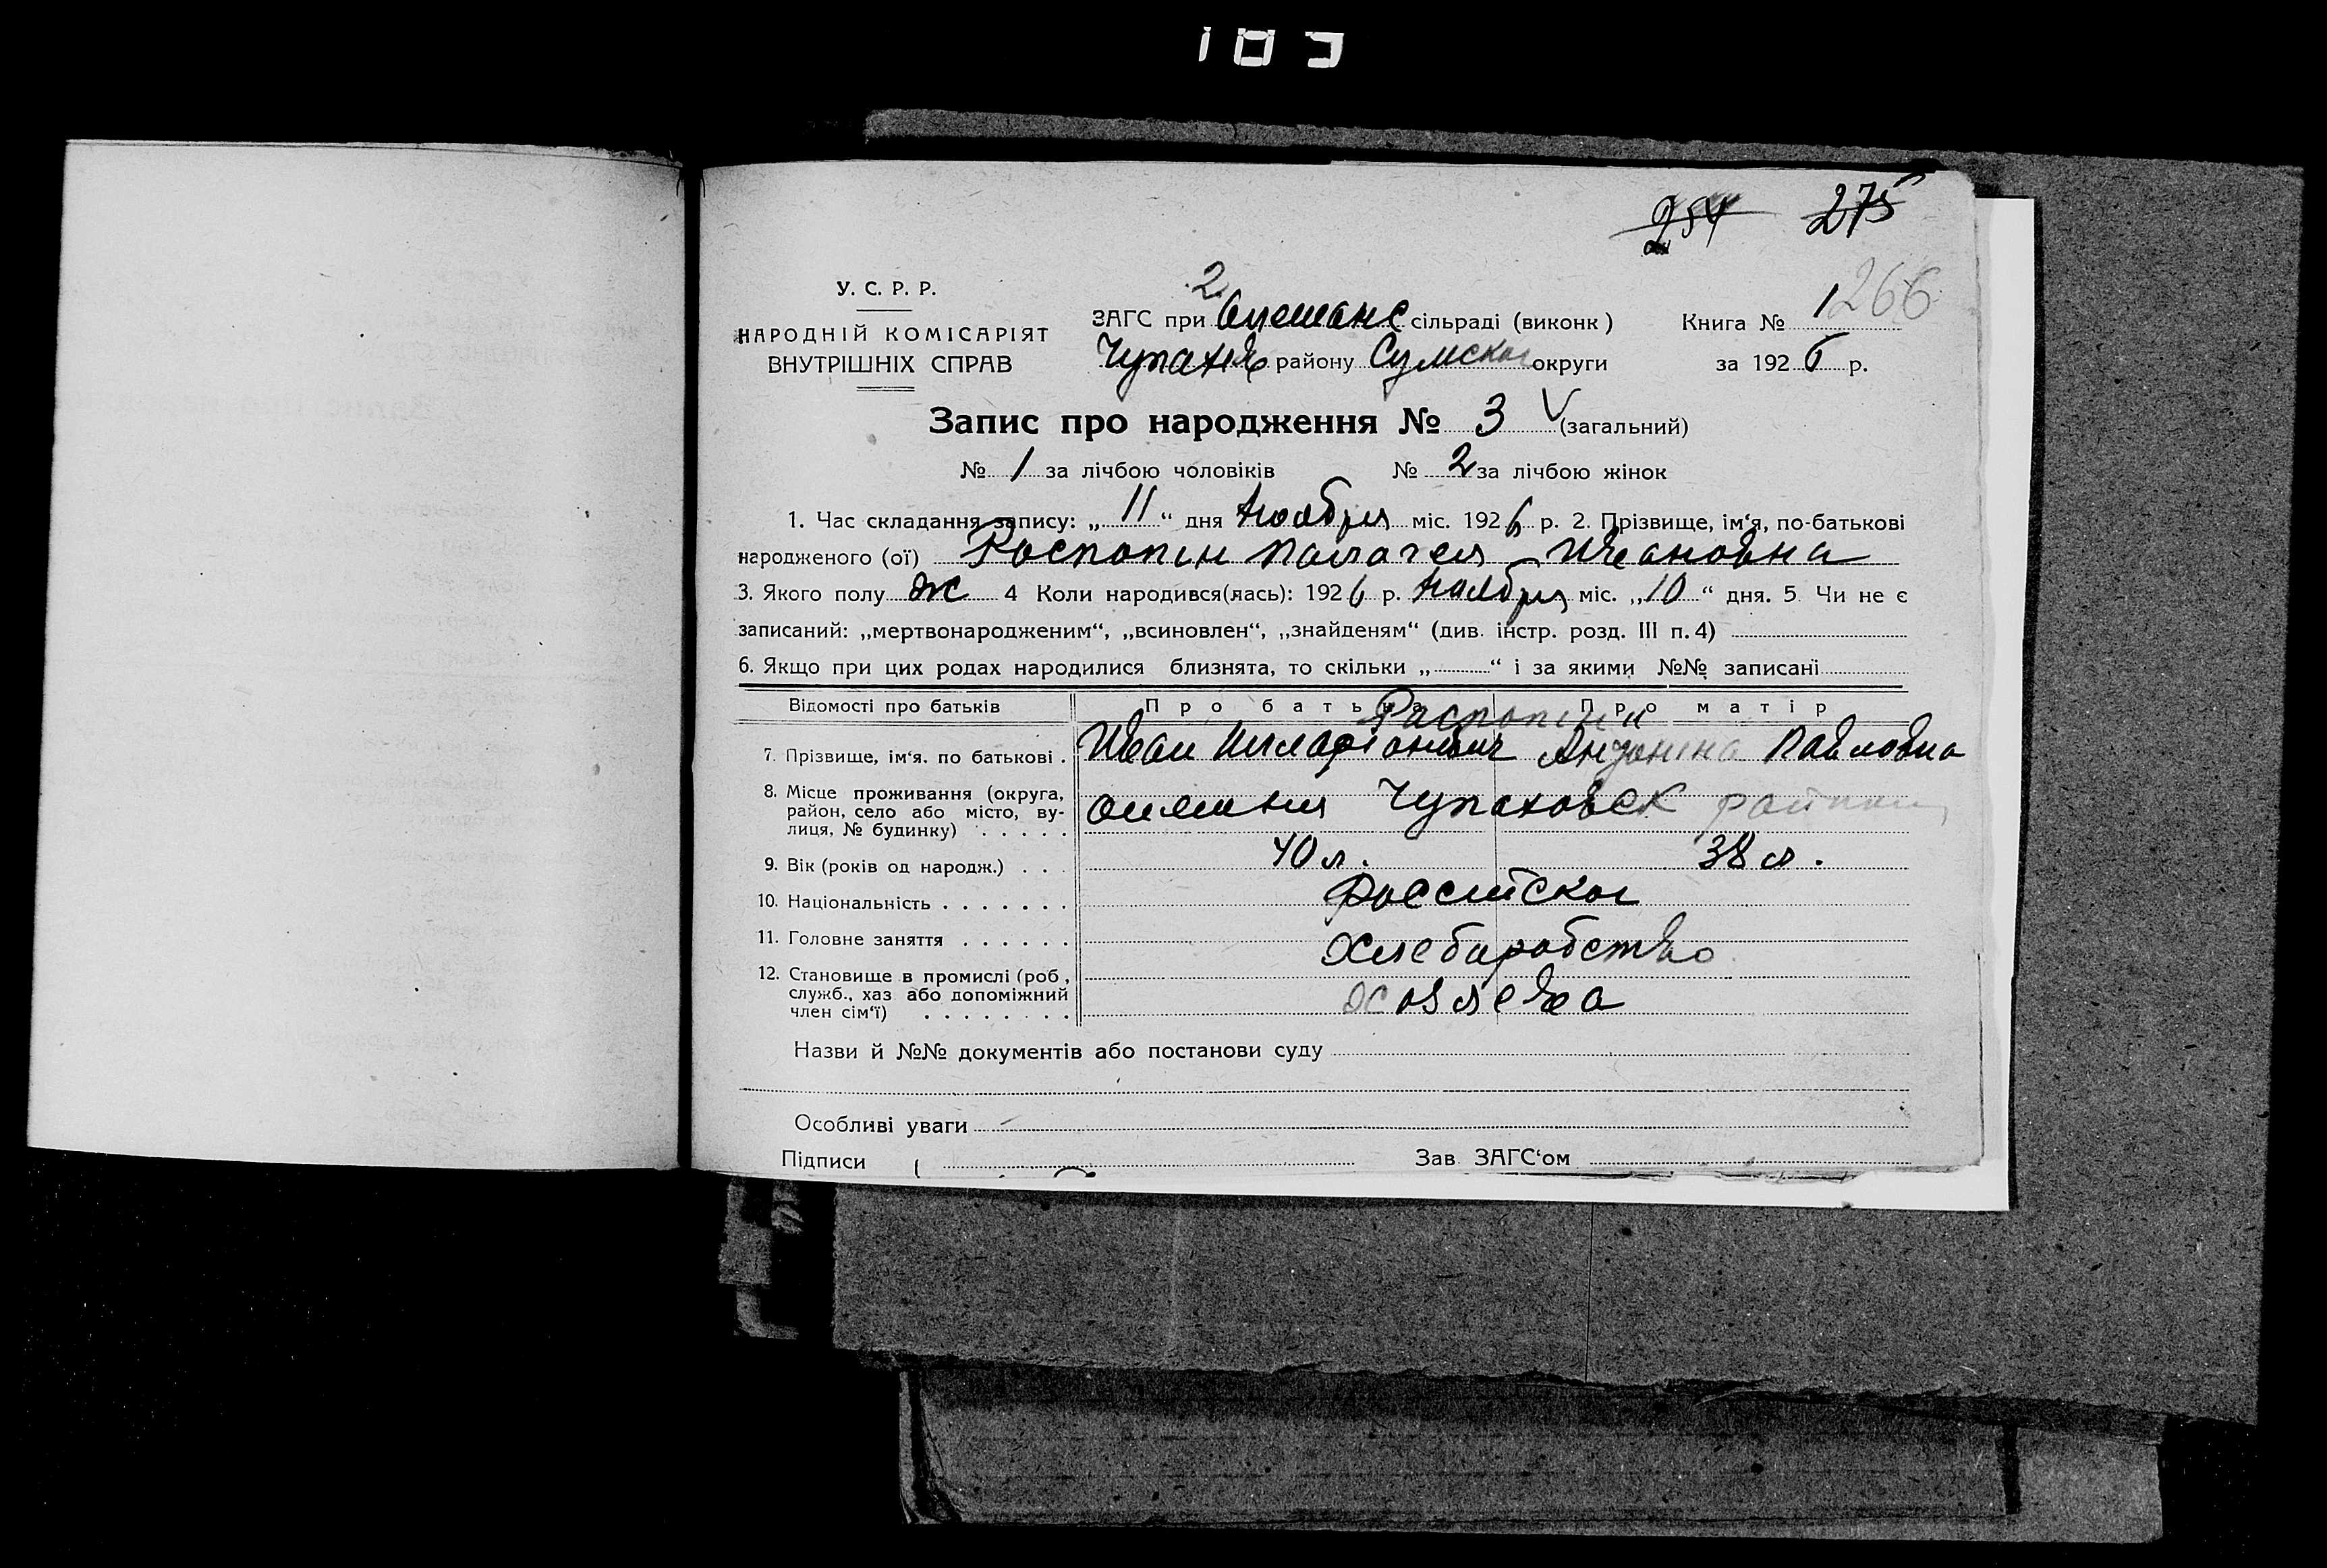 103
254 275
266
У. С. Р. Р.
НАРОДНІЙ КОМІСАРІЯТ
ВНУТРІШНІХ СПРАВ
2
ЗАГС при Олешанс сільраді (виконк)
Книга № 1
Чупахів району Сумской округи
за 1926 р.
Запис про народження № 3 V (загальний)
№ 1 за лічбою чоловіків № 2 за лічбою жінок
1. Час складання запису: „ 11 “ дня Ноября міс. 1926 р. 2. Прізвище, ім‘я, по-батькові
народженого (ої) Роспопин Палагея Ивановна
3. Якого полу Ж 4 Коли народився(лась): 1926 р. Ноября міс. „10“ дня. 5. Чи не є
записаний: „мертвонародженим“, „всиновлен“, „знайденям“ (див. інстр. розд. III п. 4)
6. Якщо при цих родах народилися близнята, то скільки „ “ і за якими №№ записані
Відомості про батьків Про батька Про матір
Распопини
7. Прізвище, ім‘я. по батькові . Иван Илларіонович Антонина Павловна
8. Місце проживання (округа,
район, село або місто, ву-
лиця, № будинку) . . . . . Олешня Чупаховск район
9. Вік (років од народж.) . . . 40 л. 38 л.
10. Національність . . . . . . . Российская
11. Головне заняття . . . . . . Хлебаробство
12. Становище в промислі (роб ,
служб., хаз або допоміжний
член сім‘ї) . . . . . . . . хозяева
Назви й №№ документів або постанови суду
Особливі уваги
Підписи ( Зав ЗАГС‘ом